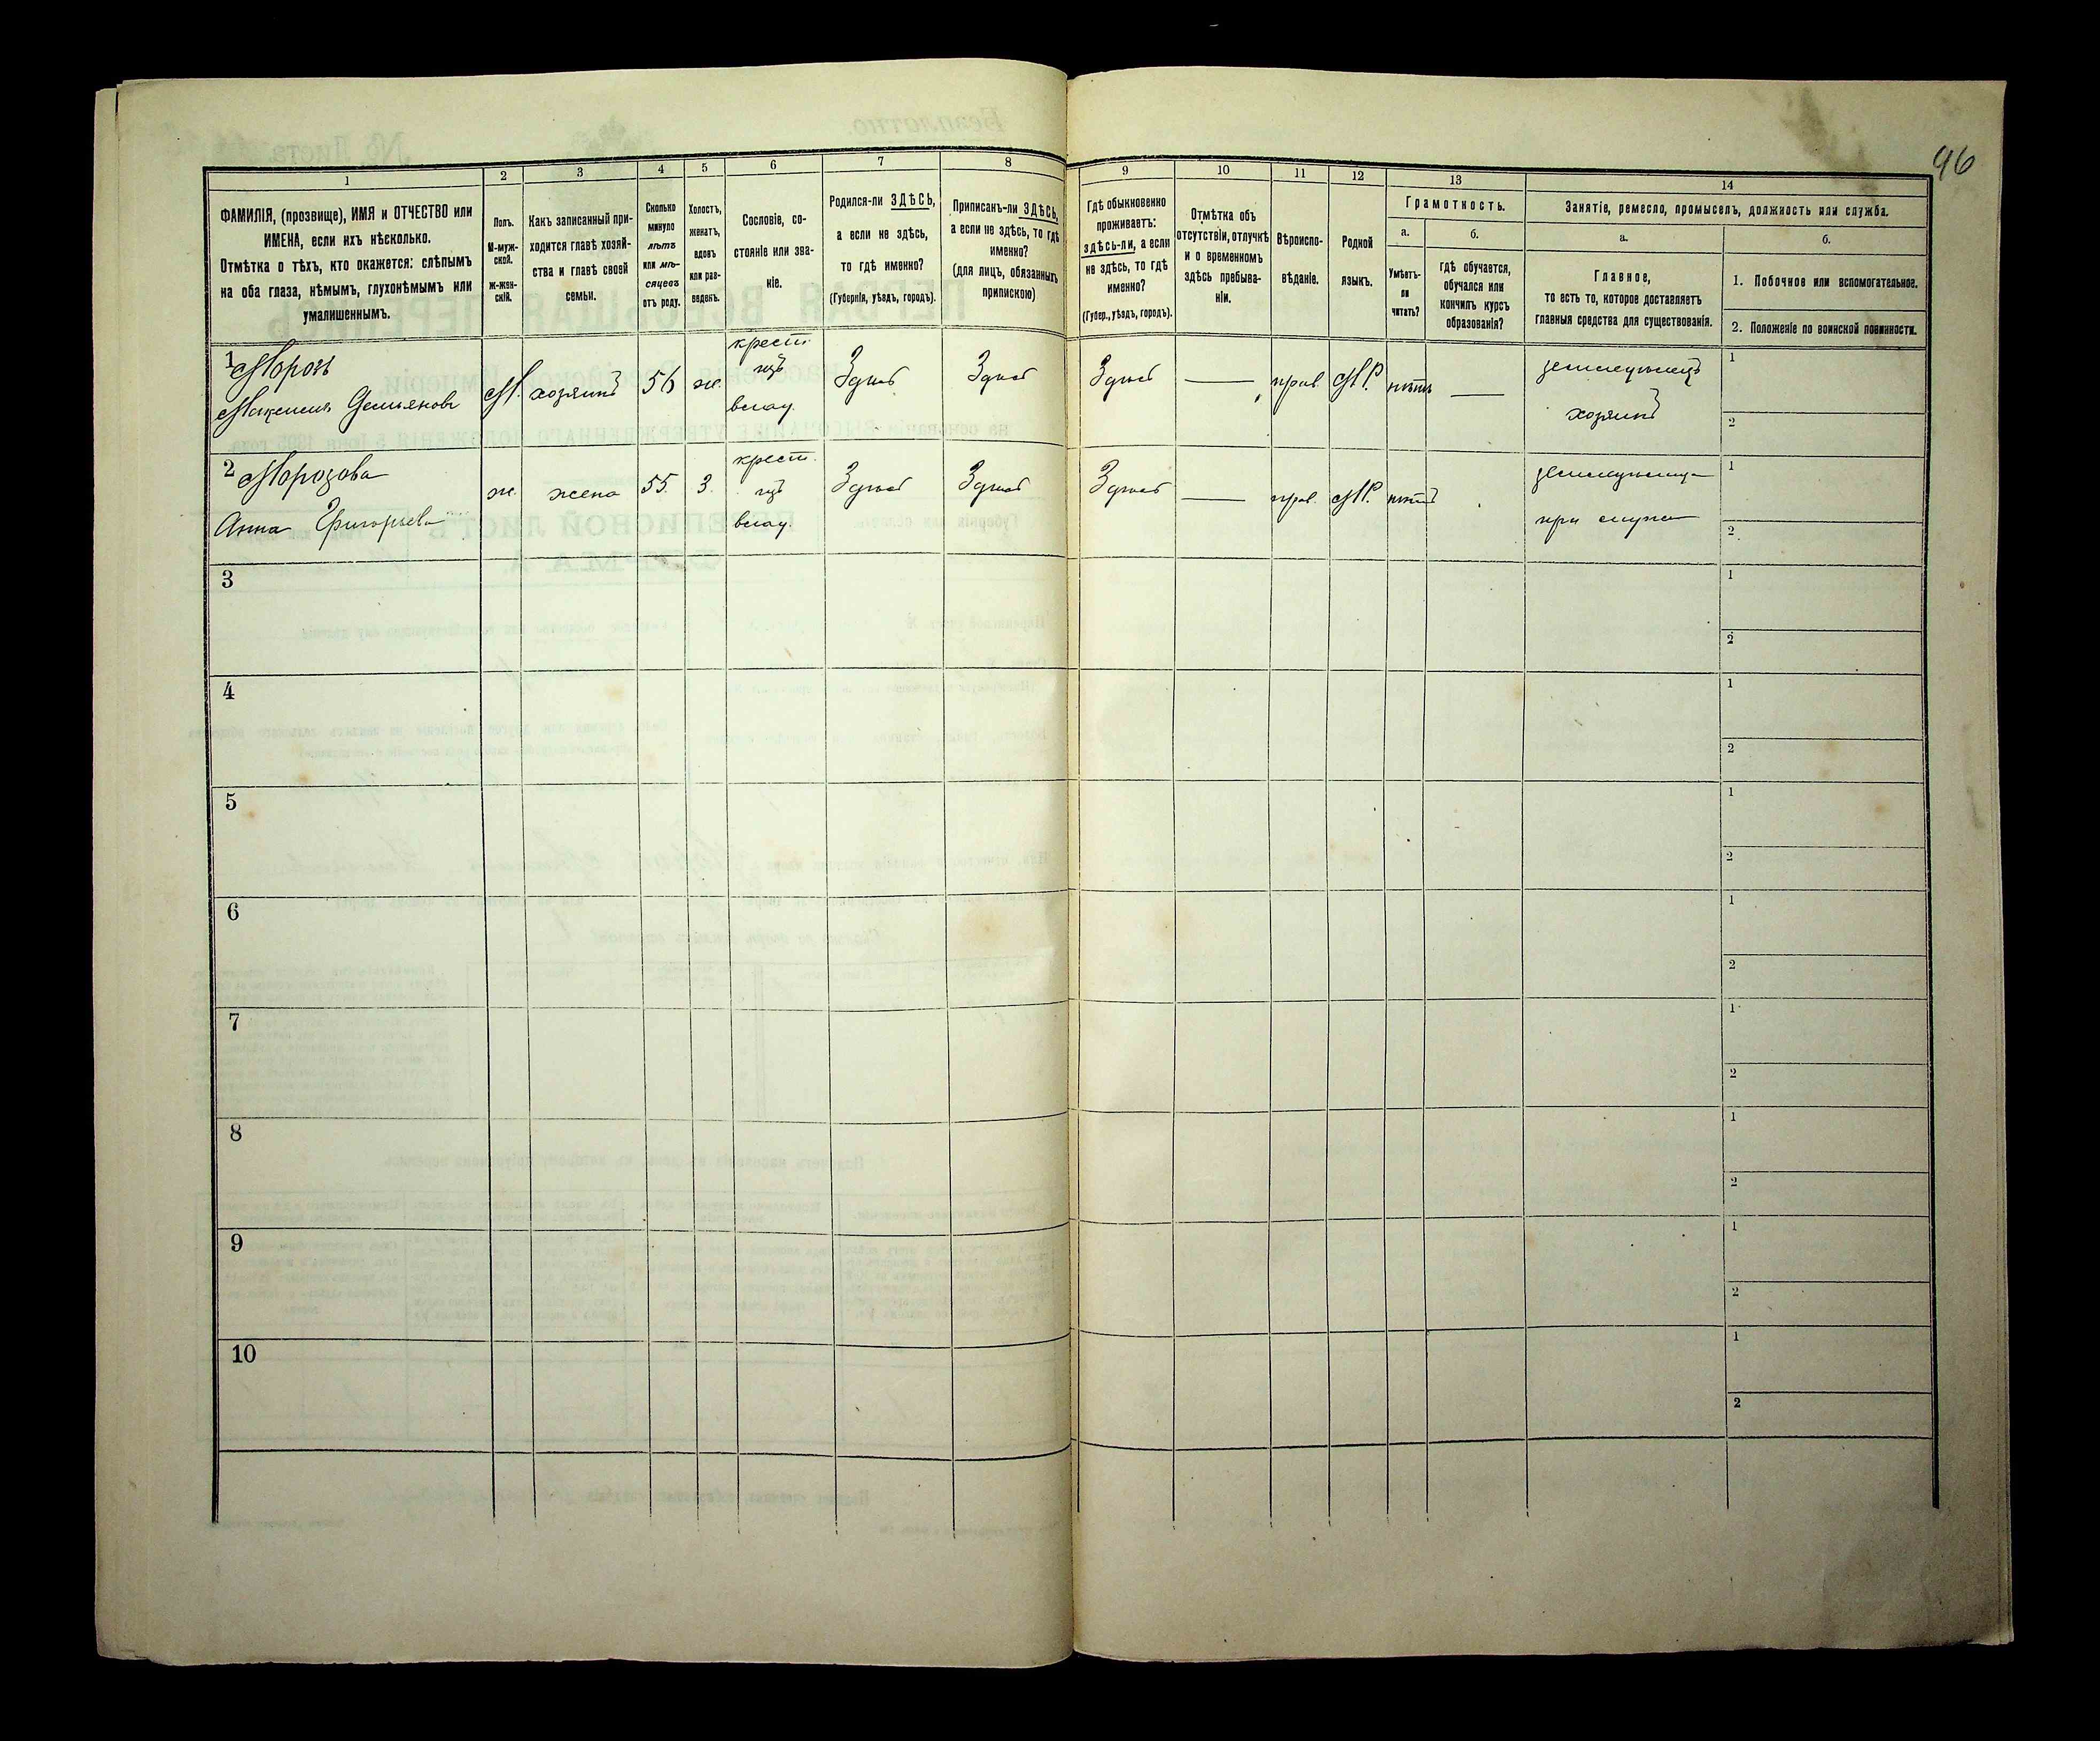 96
1
2
3
4
5
6
7
8
9
10
11
12
13
14
ФАМИЛІЯ, (прозвище), ИМЯ и ОТЧЕСТВО или
ИМЕНА, если ихъ нѣсколько.
Отмѣтка о тѣхъ, кто окажется: слѣпымъ
на оба глаза, нѣмымъ, глухонѣмымъ или
умалишеннымъ.
Полъ.
М-муж-
ской.
Ж-жен-
скій.
Какъ записанный при-
ходится главѣ хозяй-
ства и главѣ своей
семьи.
Сколько
минуло
лѣтъ
или мѣ-
сяцевъ
отъ роду.
Холостъ,
женатъ,
вдовъ
или раз-
веденъ.
Сословіе, со-
стояніе или зва-
ніе.
Родился-ли ЗДѢСЬ,
а если не здѣсь,
то гдѣ именно?
(Губернія, уѣздъ, городъ).
Приписанъ-ли ЗДѢСЬ,
а если не здѣсь, то гдѣ
именно?
(для лицъ, обязанныхъ
припискою)
Гдѣ обыкновенно
проживаетъ:
здѣсь-ли, а если
не здѣсь, то гдѣ
именно?
(Губер., уѣздъ, городъ).
Отмѣтка объ
отсутствіи, отлучкѣ
и о временномъ
здѣсь пребыва-
ніи.
Вѣроиспо-
вѣданіе.
Родной
языкъ.
Грамотность.
а.
Умѣетъ-
ли
читать?
б.
гдѣ обучается,
обучался или
кончилъ курсъ
образованія?
Занятіе, ремесло, промыселъ, должность или служба.
а.
Главное,
то есть то, которое доставляетъ
главныя средства для существованія.
б.
1. Побочное или вспомогательное.
2. Положеніе по воинской повинности.
1 Морозъ
Максимъ Демьяновъ
М.
хозяинъ
56
ж.
крест.
изъ
влад.
Здѣсь
Здѣсь
Здѣсь
—
прав.
М.Р.
нѣтъ
—
земледѣлецъ
хозяинъ
1
2
2 Морозова
Анна Григорьева
ж.
жена
55.
З.
крест.
изъ
влад.
Здѣсь
Здѣсь
Здѣсь
—
прав.
М.Р.
нѣтъ
при мужѣ
1
2
3
1
2
4
1
2
5
1
2
6
1
2
7
1
2
8
1
2
9
1
2
10
1
2